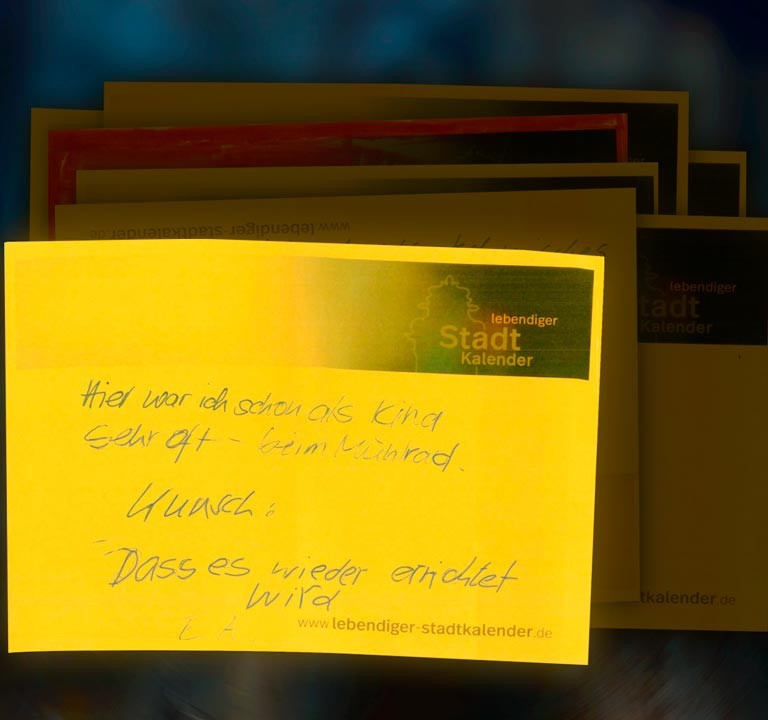 www.lebendiger-stadtkalender.de
lebendiger
Stadt
Kalender
lebendiger
Stadt
Kalender
Hier war ich schon als Kind
sehr oft - beim Mühlrad.
Wunsch:
Dass es wieder errichtet
wird
E. A.
www.lebendiger-stadtkalender.de
tkalender.de